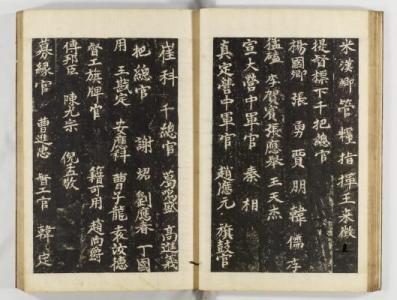 米漢卿管糧指揮王米徵
提督標下千把總官
楊國卿 張勇 賈朋 韓儒 李
 李賀賓 張應舉 王天杰
宣大營中軍官 秦相
真定營中軍官 趙應元 旗鼓官
崔科千總官 高進義
把總官 謝 劉應春 丁國
用 王 定 安應科 曹子龍 袁汝德
督工旗牌官 籍可用 趙尚爵
傅邦臣 陳九宗 倪五敬
募緣官 曹進忠 督工官 韓定